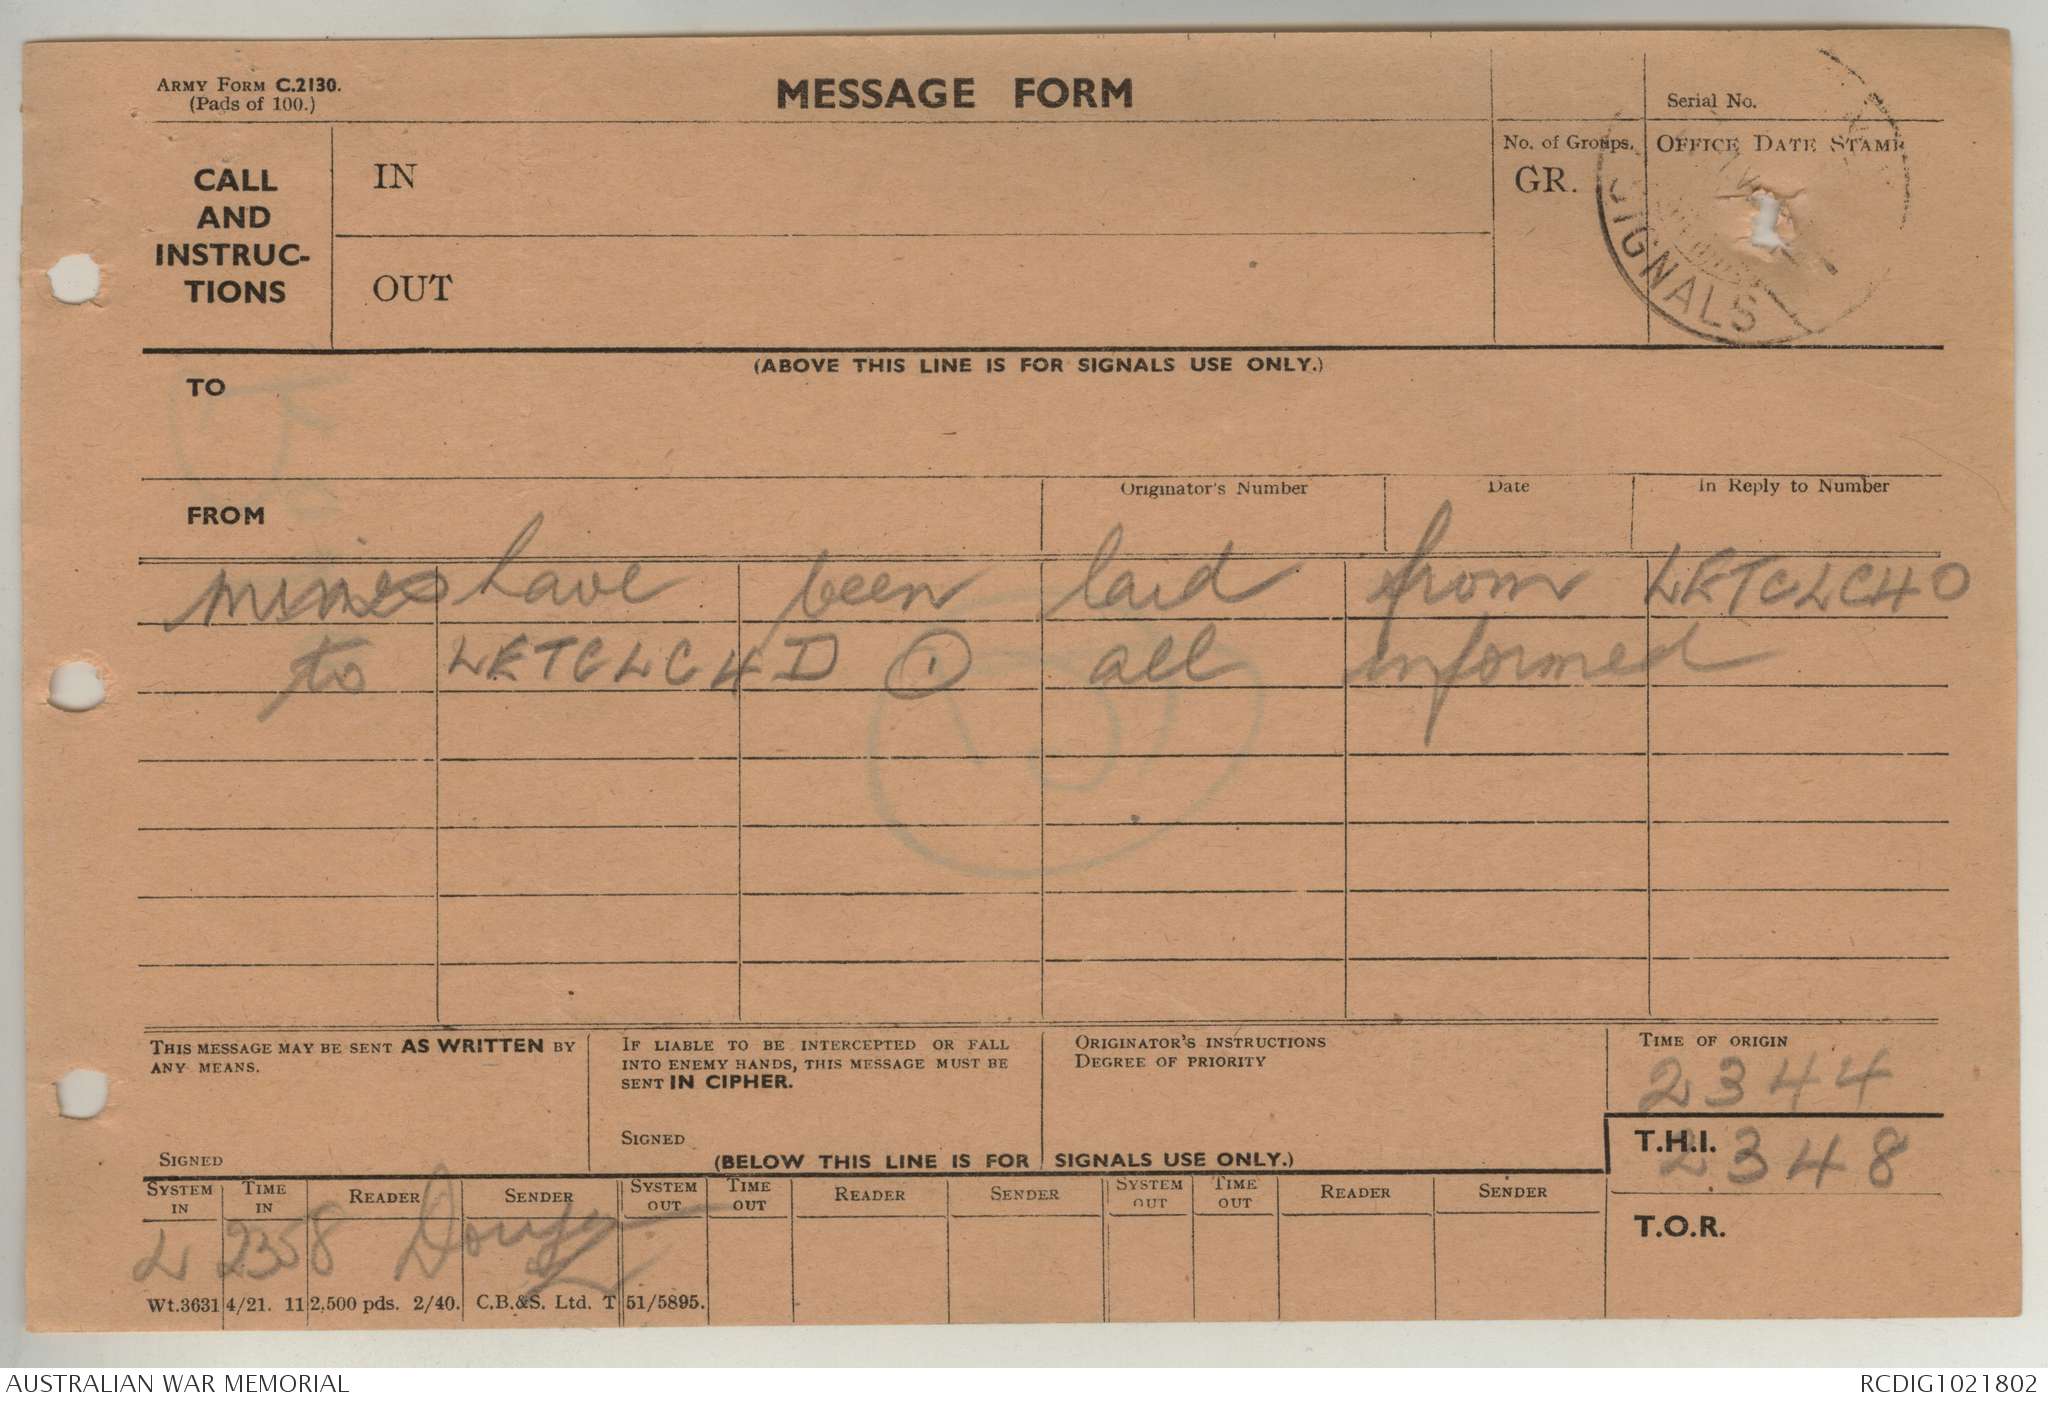 ARMY FORM C.2130.
(Pads of 100.)
MESSAGE FORM
Serial No.
CALL AND INSTRUC-TIONS
IN
OUT
No. of Groups.
GR.
OFFICE DATE STAMP
SIGNALS
(ABOVE THIS LINE IS FOR SIGNALS USE ONLY.)
TO
FROM
Originator's Number
Date
In Reply to Number
mines have been laid from LETCLC4O
to LETCLC4D all informed
THIS MESSAGE MAY BE SENT AS WRITTEN BY
ANY MEANS.
SIGNED
IF LIABLE TO BE INTERCEPTED OR FALL
INTO ENEMY HANDS, THIS MESSAGE MUST BE
SENT IN CIPHER.
SIGNED
ORIGINATOR'S INSTRUCTIONS
DEGREE OF PRIORITY
TIME OF ORIGIN
2344
T.H.I.
2348
T.O.R.
(BELOW THIS LINE IS FOR SIGNALS USE ONLY.)
SYSTEM IN TIME IN READER SENDER SYSTEM OUT TIME OUT READER SENDER SYSTEM OUT TIME OUT READER SENDER
L 2358
Wt.3631 4/21. 112,500 pds. 2/40. C.B.&S. Ltd. T 51/5895.
AUSTRALIAN WAR MEMORIAL
RCDIG1021802